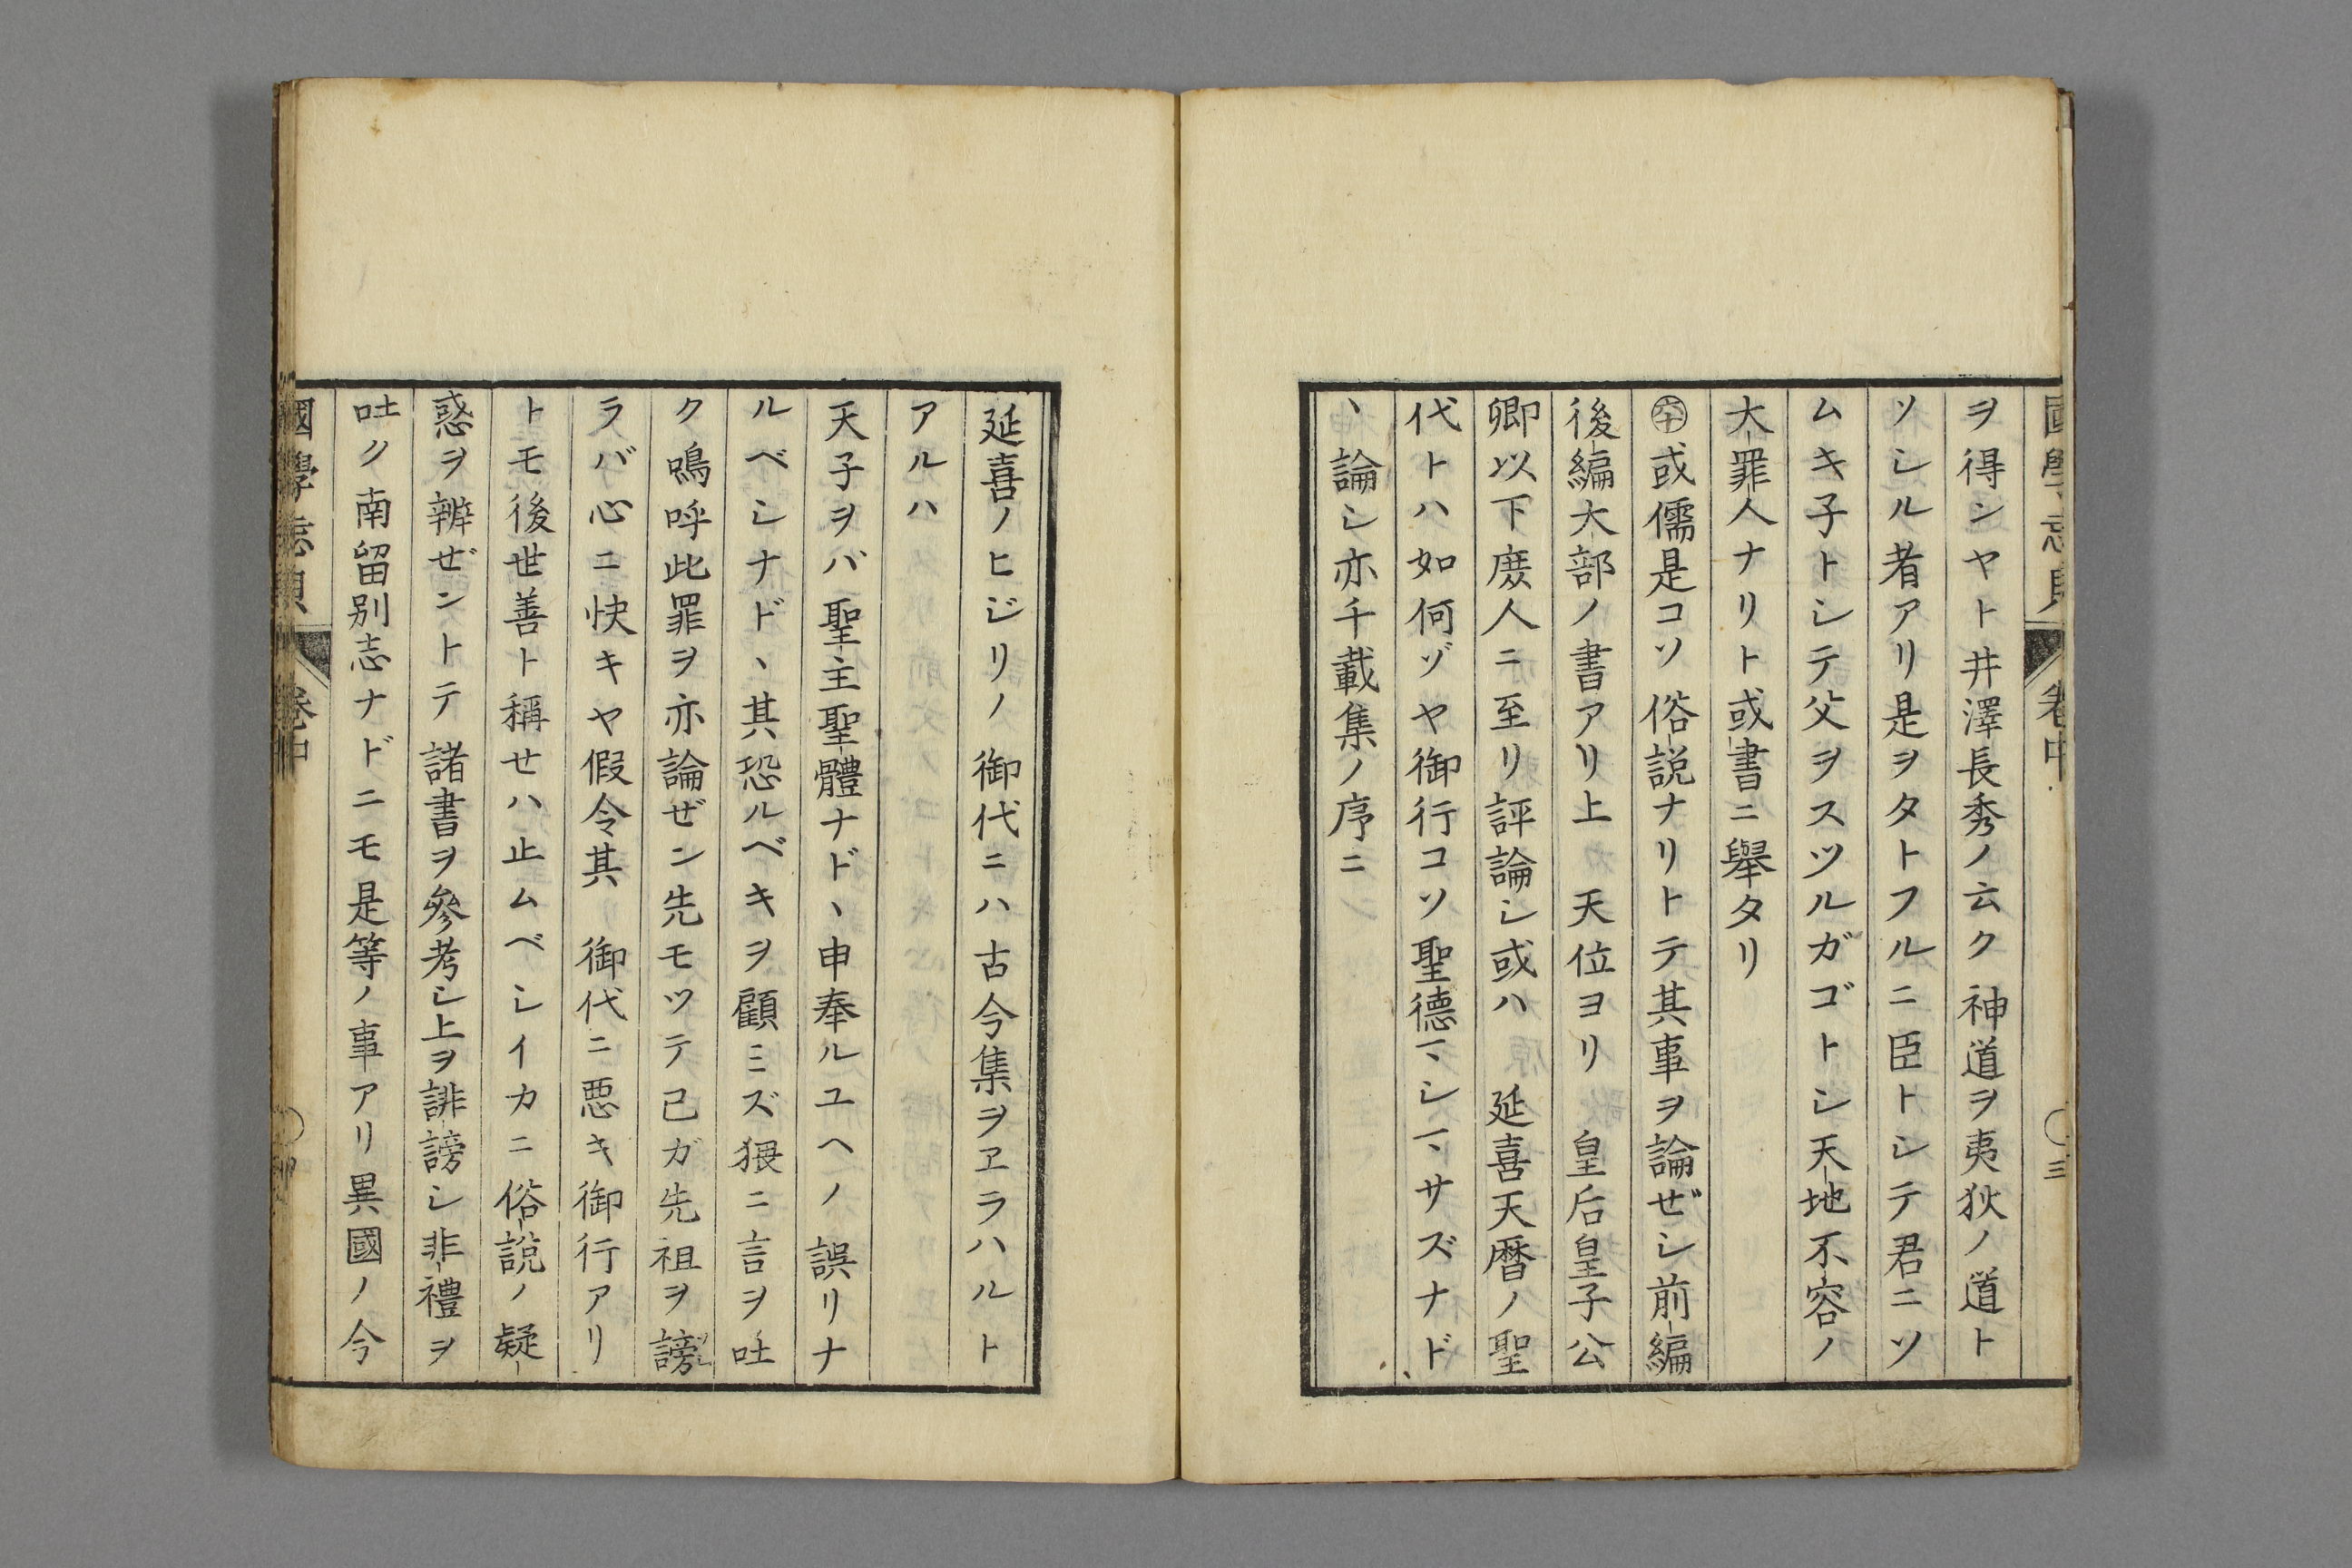 ヲ得ンヤト井澤長秀ノ云ク神道ヲ夷狄ノ道ト
ソシル者アリ是ヲタトフルニ臣トシテ君ニソ
ムキ子トシテ父ヲスツルガゴトシ天地不容ノ
大罪人ナリト或書ニ舉タリ
或儒是コソ俗説ナリトテ其事ヲ論ぜシ前編
後編大部ノ書アリ上 天位ヨリ 皇后皇子公
卿以下庻人ニ至リ評論シ或ハ 延喜天暦ノ聖
代トハ如何ゾヤ御行コソ聖德マヽシマサズナド
丶論シ亦千載集ノ序ニ
延喜ノヒジリノ 御代ニハ古今集ヲヱラハルト
アルハ
天子ヲバ聖主聖體ナド丶申奉ルユヘノ誤リナ
ルベシナド丶其恐ルベキヲ顧ミズ猥ニ言ヲ吐
ク嗚呼此罪ヲ亦論ぜン先モツテ己ガ先祖ヲ謗
ラバ心ニ快キヤ假令其 御代ニ悪キ御行アリ
トモ後世善ト稱せハ止ムベシイカニ俗説ノ疑
惑ヲ辨ぜントテ諸書ヲ參考シ上ヲ誹謗シ非禮ヲ
吐ク南留别志ナドニモ是等ノ事アリ異國ノ今
國學忘貝 卷中